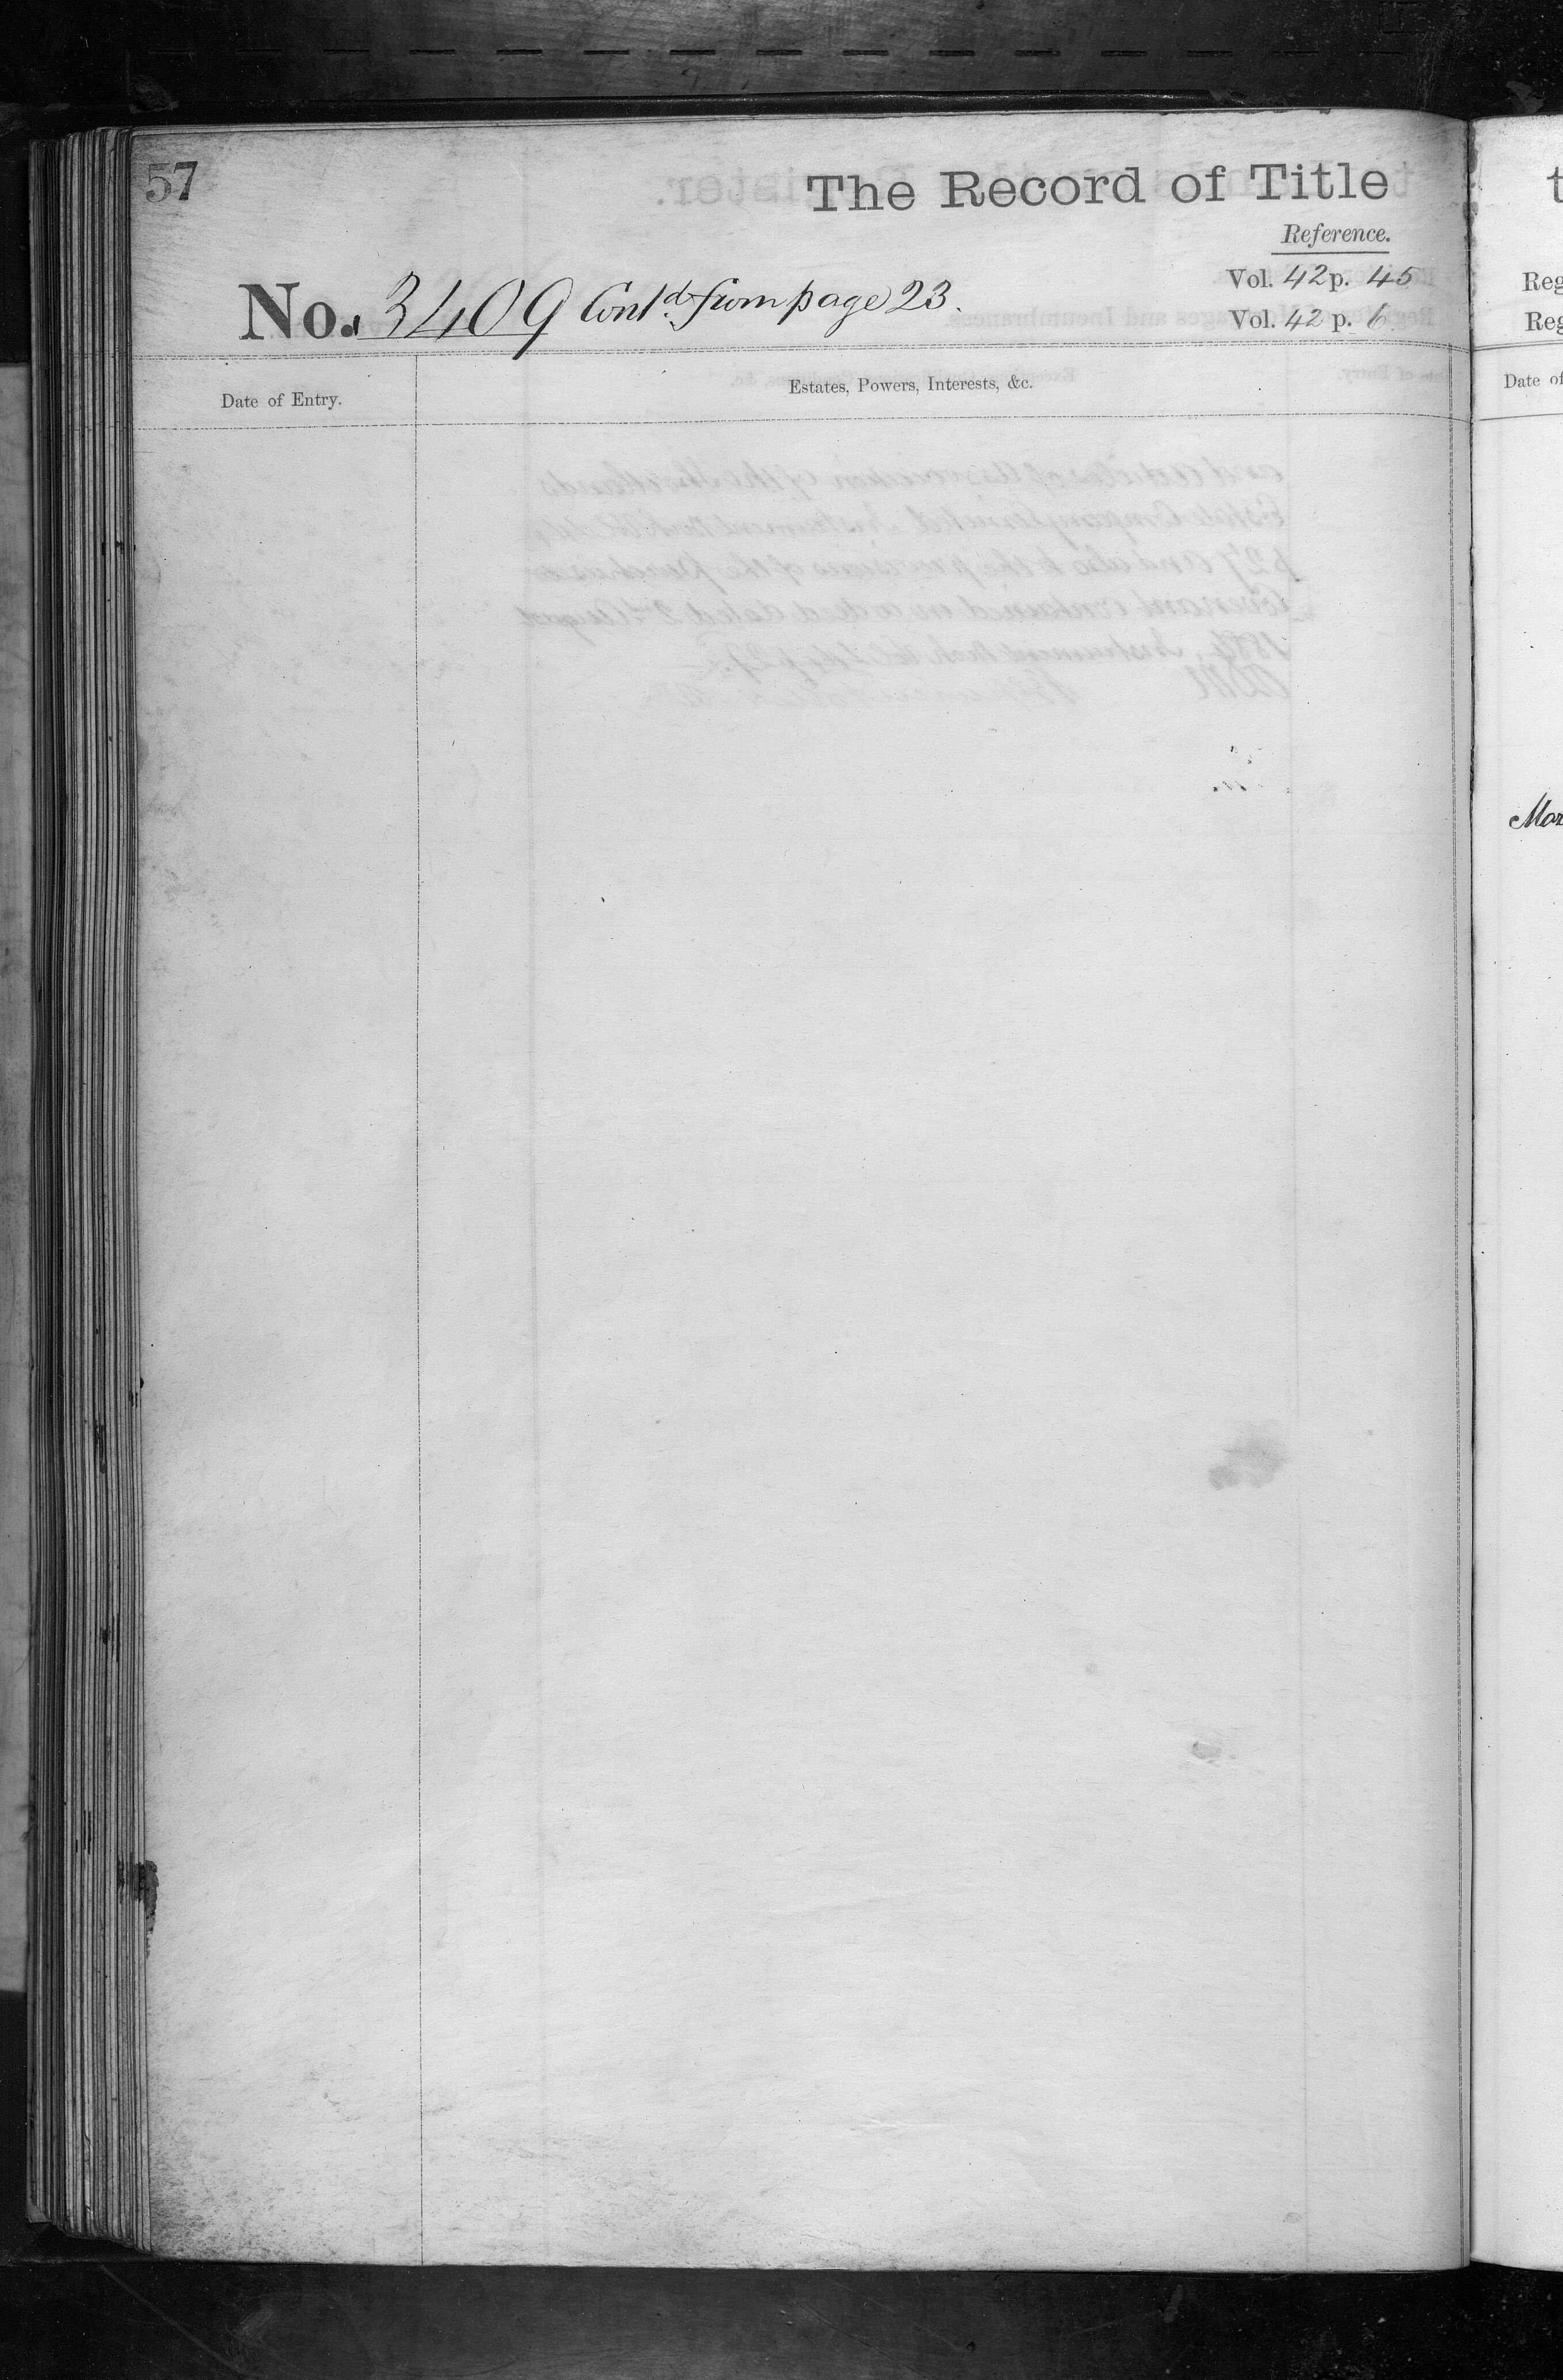 57
The Record of Title
Reference.
Vol. 42 p. 45
No. 3409 Contd. from page 23.
Vol. 42 p. 6
Date of Entry.
Estates, Powers, Interests, &c.
t
Reg
Reg
Date of
Mar